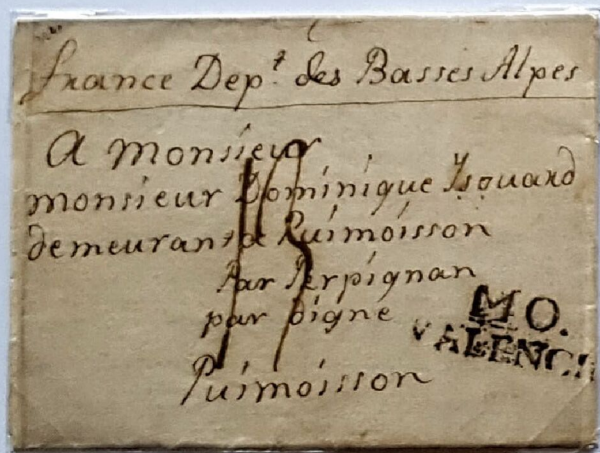 france Dep.t des Basses Alpes
A Monsieur
monsieur Dominique Isouard
demeurant a Puimoisson
Par Perpignan
par digne
Puimoisson
MO.
VALENCI